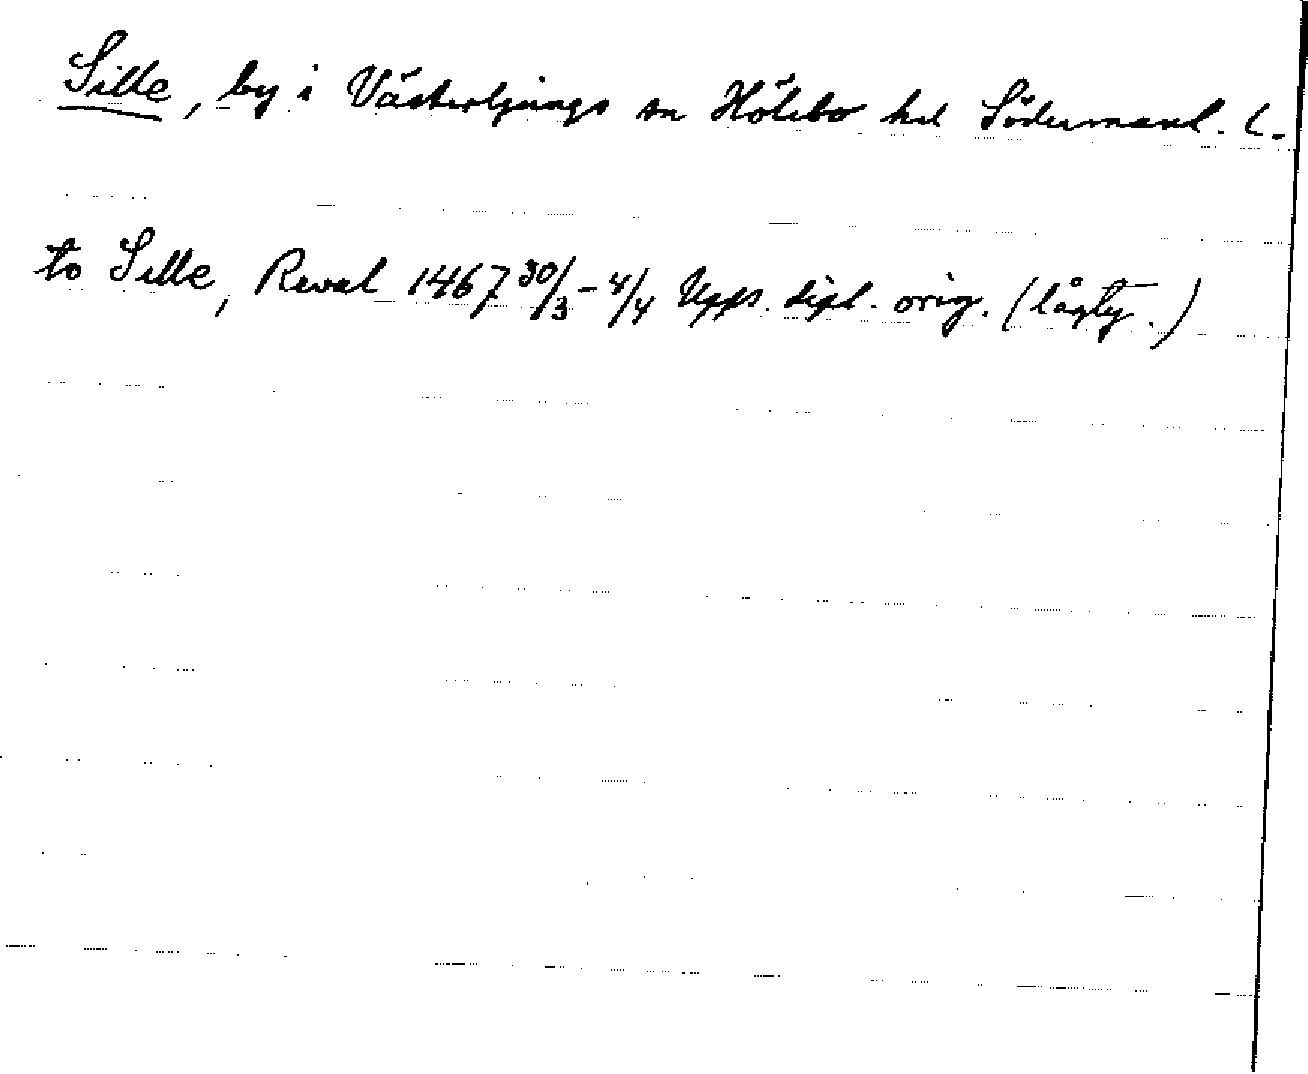 Sille, by i Västerljungs sn Hölebo hd Södermanl. l.
to Sille, Reval 1467 30/3 - 4/4 Upps. dipl. orig. (lågty.)